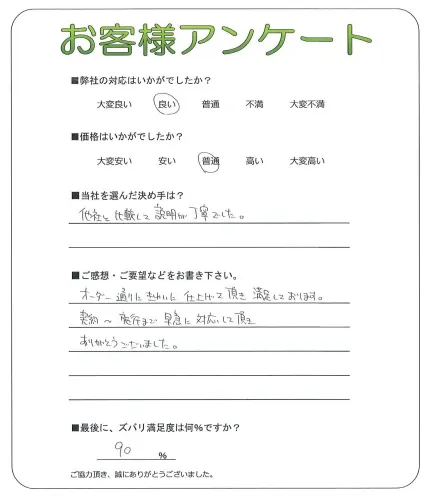 お客様アンケート
■弊社の対応はいかがでしたか？
大変良い 良い 普通 不満 大変不満
■価格はいかがでしたか？
大変安い 安い 普通 高い 大変高い
■当社を選んだ決め手は？
他社と比較して説明が丁寧でした。
■ご感想・ご要望などをお書き下さい。
オーダー通りにきれいに仕上げて頂き満足しております。
契約〜施行まで早急に対応して頂き
ありがとうございました。
■最後に、ズバリ満足度は何％ですか？
90 ％
ご協力頂き、誠にありがとうございました。